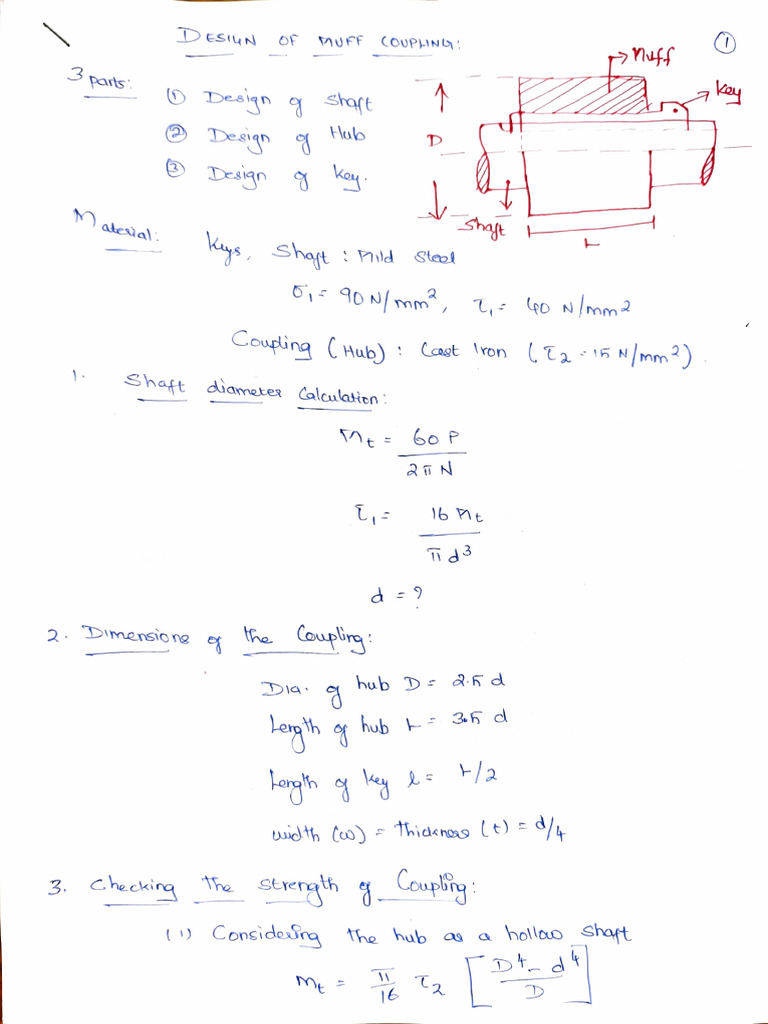 DESIGN OF MUFF COUPLING:
1
3 parts:
① Design of Shaft
② Design of Hub
③ Design of key.
Muff
key
D
Shaft
L
Material:
Keys, Shaft : Mild Steel
σ₁ = 90 N/mm², τ₁ = 40 N/mm²
Coupling (Hub) : Cast Iron (τ₂ = 15 N/mm²).
1. Shaft diameter Calculation:
Mt = 60 P / 2πN
τ₁ = 16 Mt / πd³
d = ?
2. Dimensions of the Coupling:
Dia. of hub D = 2.5 d
Length of hub L = 3.5 d
Length of key l = L/2
width (w) = thickness (t) = d/4
3. Checking the strength of Coupling:
(1) Considering the hub as a hollow shaft
Mt = π/16 τ₂ [D⁴ - d⁴ / D]